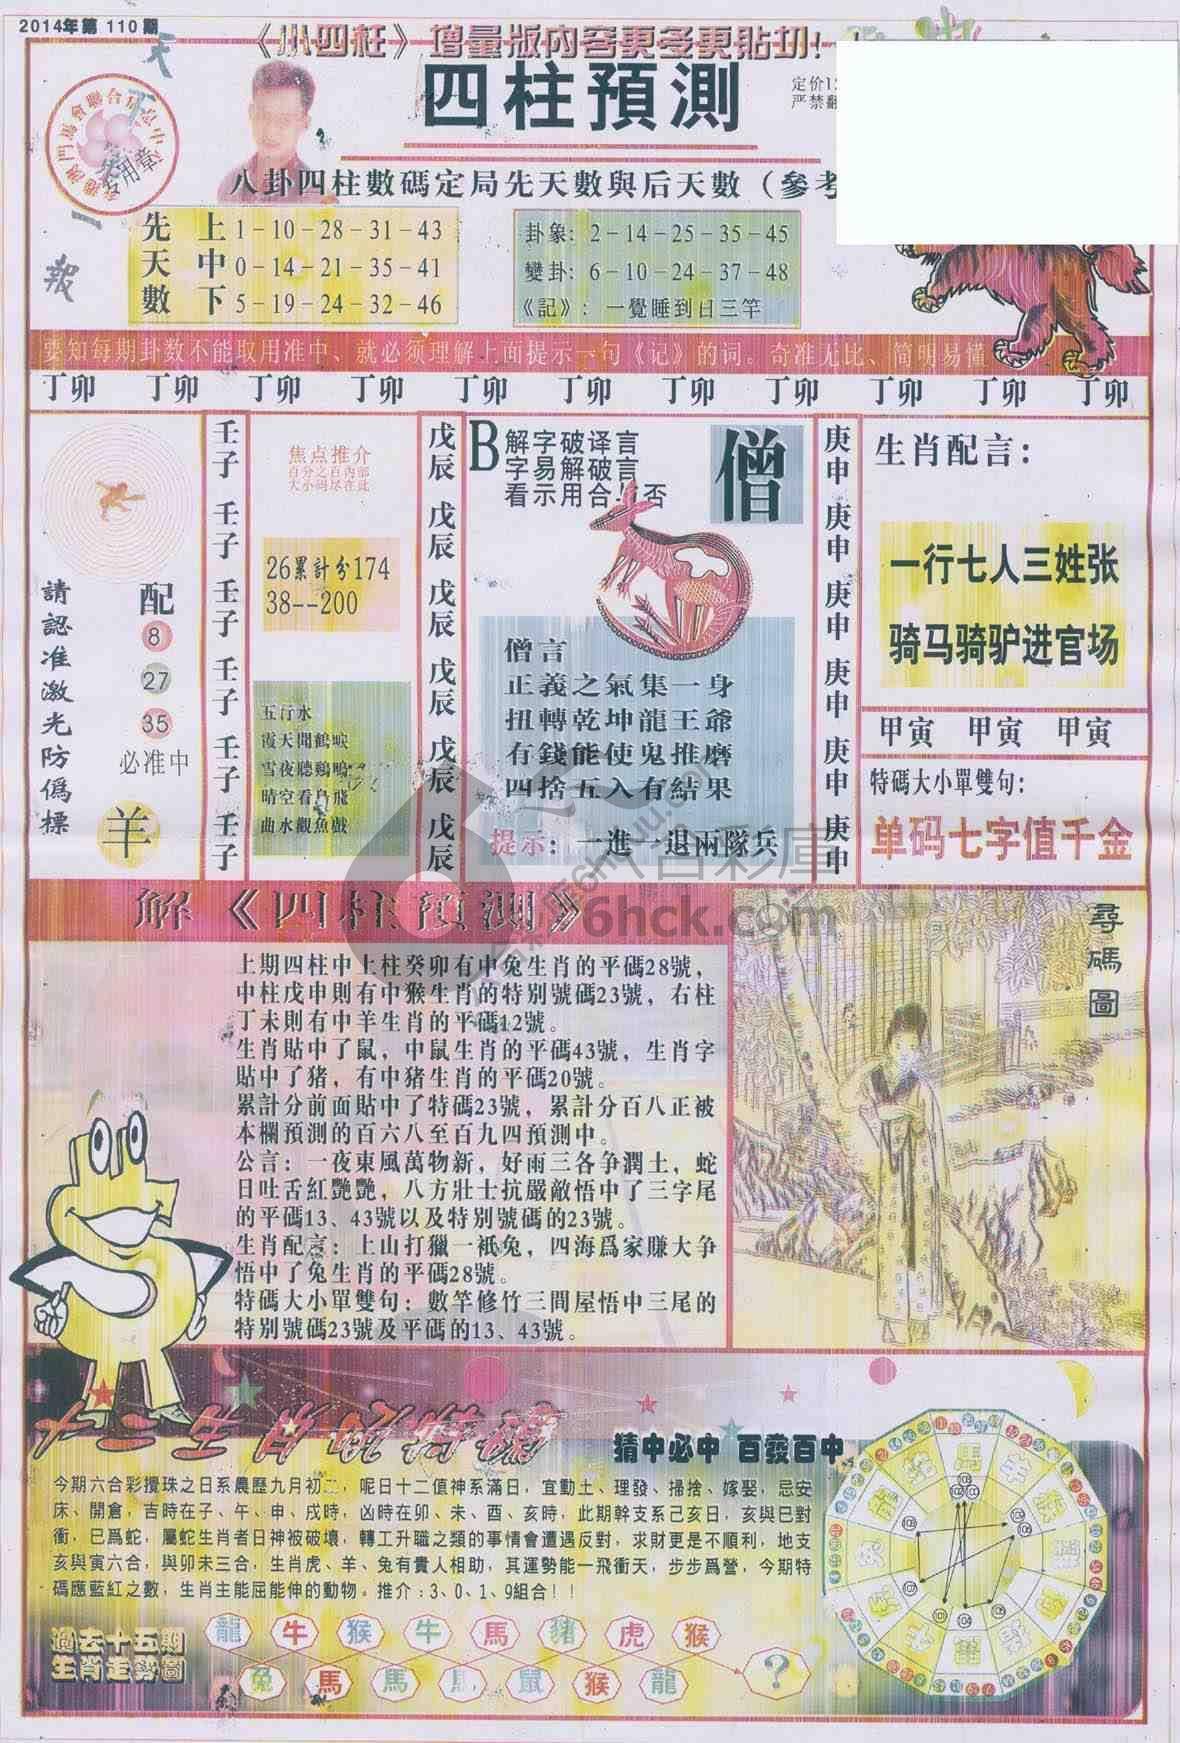 2014年第110期
《小四柱》增量版内容更多更貼切!
四柱預測
定价
严禁翻
天下一報
專用章
八卦四柱數碼定局先天數與后天數（參考
先天數
上 1-10-28-31-43
中 0-14-21-35-41
下 5-19-24-32-46
卦象: 2-14-25-35-45
變卦: 6-10-24-37-48
《記》: 一覺睡到日三竿
要知每期卦数不能取用准中、就必须理解上面提示一句《记》的词。奇准无比、简明易懂
丁卯 丁卯 丁卯 丁卯 丁卯 丁卯 丁卯 丁卯 丁卯 丁卯 丁卯
請認准激光防僞標
配
8
27
35
必准中
羊
壬子 壬子 壬子 壬子 壬子 壬子
焦点推介
百分之百内部
大小码尽在此
26累計分174
38--200
五行水
霞天聞鶴唳
雪夜聽鷄鳴
晴空看鳥飛
曲水觀魚戲
戊辰 戊辰 戊辰 戊辰 戊辰 戊辰
B
解字破译言
字易解破言
看示用合与否
僧
僧言
正義之氣集一身
扭轉乾坤龍王爺
有錢能使鬼推磨
四捨五入有結果
提示: 一進一退兩隊兵
庚申 庚申 庚申 庚申 庚申 庚申
生肖配言:
一行七人三姓张
骑马骑驴进官场
甲寅 甲寅 甲寅
特碼大小單雙句:
单码七字值千金
解《四柱預測》
上期四柱中上柱癸卯有中兔生肖的平碼28號，
中柱戊申則有中猴生肖的特别號碼23號，右柱
丁未則有中羊生肖的平碼12號。
生肖貼中了鼠，中鼠生肖的平碼43號，生肖字
貼中了猪，有中猪生肖的平碼20號。
累計分前面貼中了特碼23號，累計分百八正被
本欄預測的百六八至百九四預測中。
公言: 一夜東風萬物新，好雨三各争潤土，蛇
日吐舌紅艷艷，八方壯士抗嚴敵悟中了三字尾
的平碼13、43號以及特别號碼的23號。
生肖配言: 上山打獵一衹兔，四海爲家賺大爭
悟中了兔生肖的平碼28號。
特碼大小單雙句: 數竿修竹三間屋悟中三尾的
特别號碼23號及平碼的13、43號。
尋碼圖
六合彩庫
6hck.com
猜中必中 百發百中
今期六合彩攪珠之日系農歷九月初二，呢日十二值神系滿日，宜動土、理發、掃捨、嫁娶，忌安
床、開倉，吉時在子、午、申、戌時，凶時在卯、未、酉、亥時，此期幹支系己亥日，亥與巳對
衝，巳爲蛇，屬蛇生肖者日神被破壞，轉工升職之類的事情會遭遇反對，求財更是不順利，地支
亥與寅六合，與卯未三合，生肖虎、羊、兔有貴人相助，其運勢能一飛衝天，步步爲營，今期特
碼應藍紅之數，生肖主能屈能伸的動物。推介:3、0、1、9組合!!
過去十五期
生肖走勢圖
龍 牛 猴 牛 馬 豬 虎 猴
兔 馬 馬 馬 鼠 猴 龍 ?